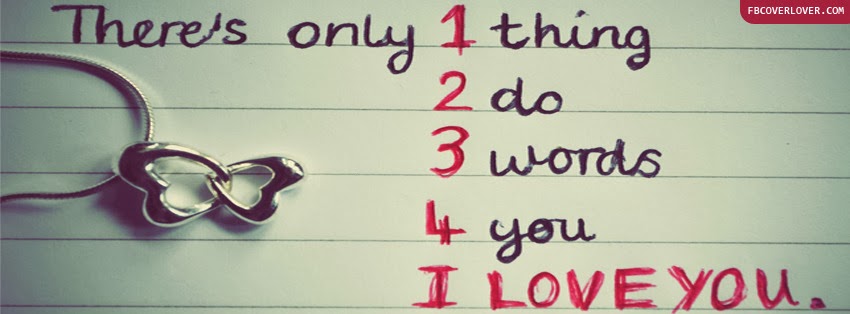 FBCOVERLOVER.COM
There's only 1 thing
2 do
3 words
4 you
I LOVE YOU.